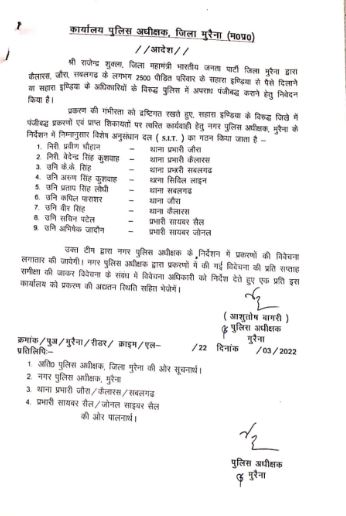 कार्यालय पुलिस अधीक्षक, जिला मुरैना (म०प्र०)
//आदेश//
श्री राजेन्द्र शुक्ला, जिला महामंत्री भारतीय जनता पार्टी जिला मुरैना द्वारा
कैलारस, जौरा, सबलगढ के लगभग 2500 पीडित परिवार के सहारा इण्डिया से पैसे दिलाने
या सहारा इण्डिया के अधिकारियों के विरूद्ध पुलिस में अपराध पंजीबद्ध कराने हेतु निवेदन
किया है।
प्रकरण की गंभीरता को द्रष्टिगत रखते हुए, सहारा इण्डिया के विरूद्ध जिले में
पंजीबद्ध प्रकरणों एवं प्राप्त शिकायतों पर त्वरित कार्यवाही हेतु नगर पुलिस अधीक्षक, मुरैना के
निर्देशन में निम्नानुसार विशेष अनुसंधान दल ( S.I.T. ) का गठन किया जाता है –
1. निरी. प्रवीण चौहान – थाना प्रभारी जौरा
2. निरी. वेदेन्द्र सिंह कुशवाह – थाना प्रभारी कैलारस
3. उनि के.के. सिंह – थाना प्रभारी सबलगढ
4. उनि अरूण सिंह कुशवाह – थाना सिविल लाईन
5. उनि प्रताप सिंह लोधी – थाना सबलगढ
6. उनि कपिल पाराशर – थाना जौरा
7. उनि वीर सिंह – थाना कैलारस
8. उनि सचिन पटेल – प्रभारी सायबर सैल
9. उनि अभिषेक जादौन – प्रभारी सायबर जोनल
उक्त टीम द्वारा नगर पुलिस अधीक्षक के निर्देशन में प्रकरणों की विवेचना
लगातार की जायेगी। नगर पुलिस अधीक्षक द्वारा प्रकरणों में की गई विवेचना की प्रति सप्ताह
समीक्षा की जाकर विवेचना के संबंध में विवेचना अधिकारी को निर्देश देते हुए एक प्रति इस
कार्यालय को प्रकरण की अद्यतन स्थिति सहित भेजेगें।
( आशुतोष बागरी )
पुलिस अधीक्षक
मुरैना
क्रमांक/पुअ/मुरैना/रीडर/ क्राइम/एल– /22 दिनांक /03/2022
प्रतिलिपिः–
1. अति० पुलिस अधीक्षक, जिला मुरैना की ओर सूचनार्थ।
2. नगर पुलिस अधीक्षक, मुरैना
3. थाना प्रभारी जौरा/कैलारस/सबलगढ
4. प्रभारी सायबर सैल/जोनल साइबर सैल
की ओर पालनार्थ।
पुलिस अधीक्षक
मुरैना